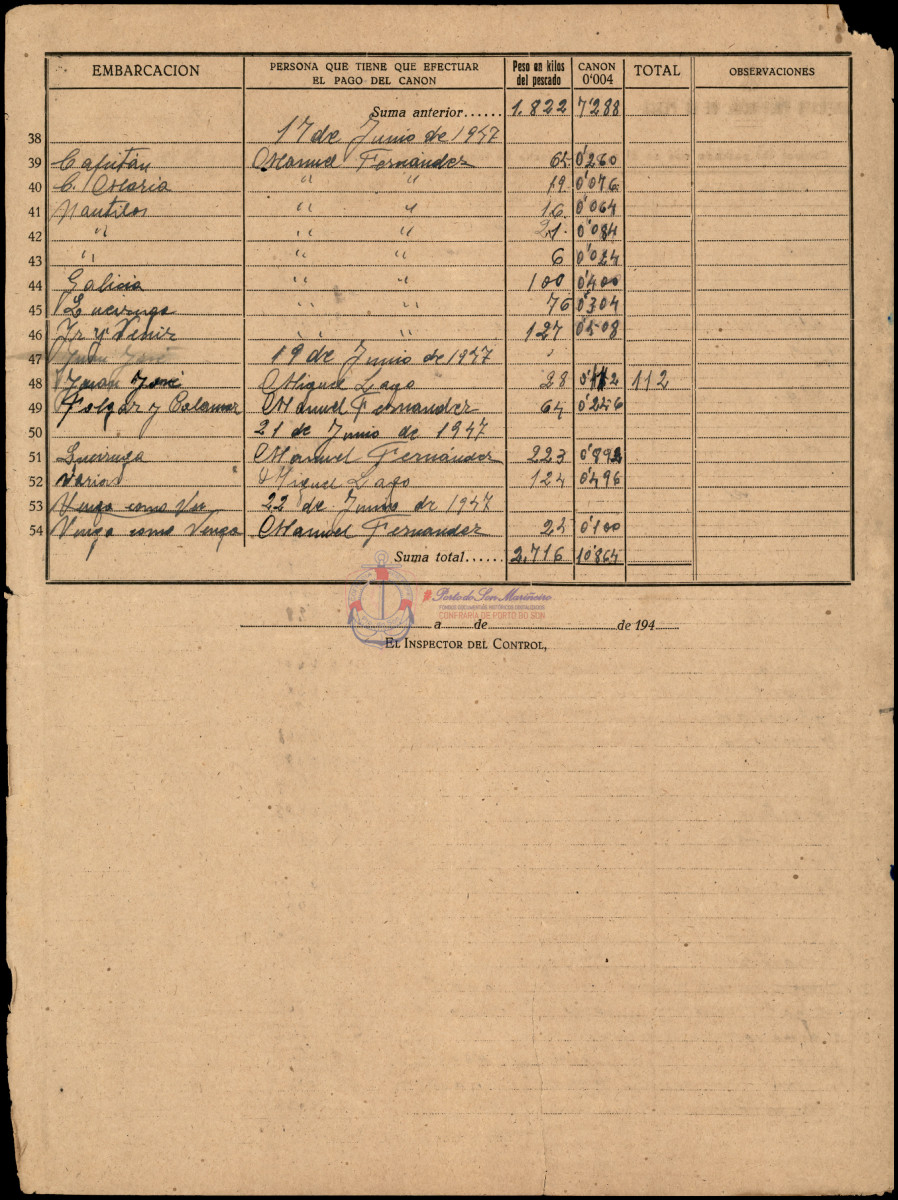 EMBARCACION PERSONA QUE TIENE QUE EFECTUAR EL PAGO DEL CANON Peso en kilos del pescado CANON 0'004 TOTAL OBSERVACIONES
Suma anterior...... 1.822 7'288
38 17 de Junio de 1947
39 Capitán Manuel Fernández 65 0'260
40 C. Maria " " 19 0'076
41 Nautilos " " 16 0'064
42 " " " 21 0'084
43 " " " 6 0'024
44 Galicia " " 100 0'400
45 Queiruga " " 76 0'304
46 Ir y Venir " " 127 0'508
47 Juan José 19 de Junio de 1947
48 Juan José Miguel Lago 28 0'112 112
49 Folgar y Colomer Manuel Fernandez 64 0'256
50 21 de Junio de 1947
51 Queiruga Manuel Fernández 223 0'892
52 Varios Miguel Lago 124 0'496
53 Venga como Ven 22 de Junio de 1947
54 Venga como Venga Manuel Fernandez 25 0'100
Suma total...... 2,716 10'864
Porto do Son Mariñeiro
FONDOS DOCUMENTAIS HISTÓRICOS DIXITALIZADOS
CONFRARÍA DE PORTO DO SON
a de de 194
EL INSPECTOR DEL CONTROL,